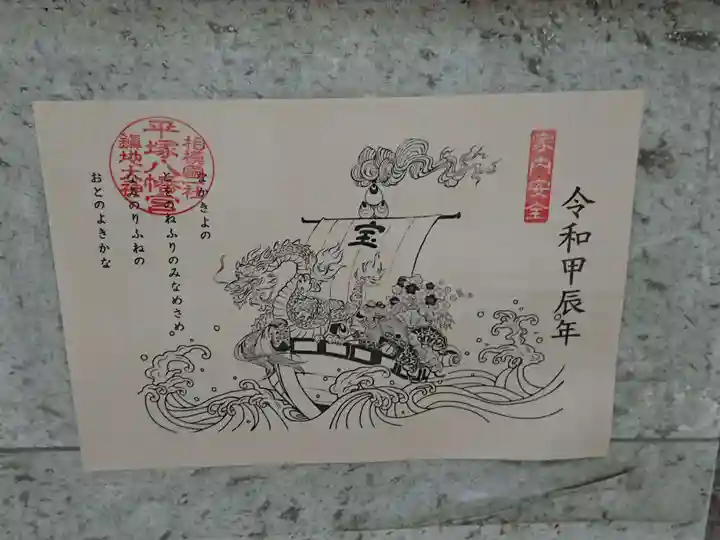 令和甲辰年
家内安全
宝
なかきよの
とをのねふりのみなめさめ
なみのりふねの
おとのよきかな
相模國社
平塚八幡宮
鎮地大神